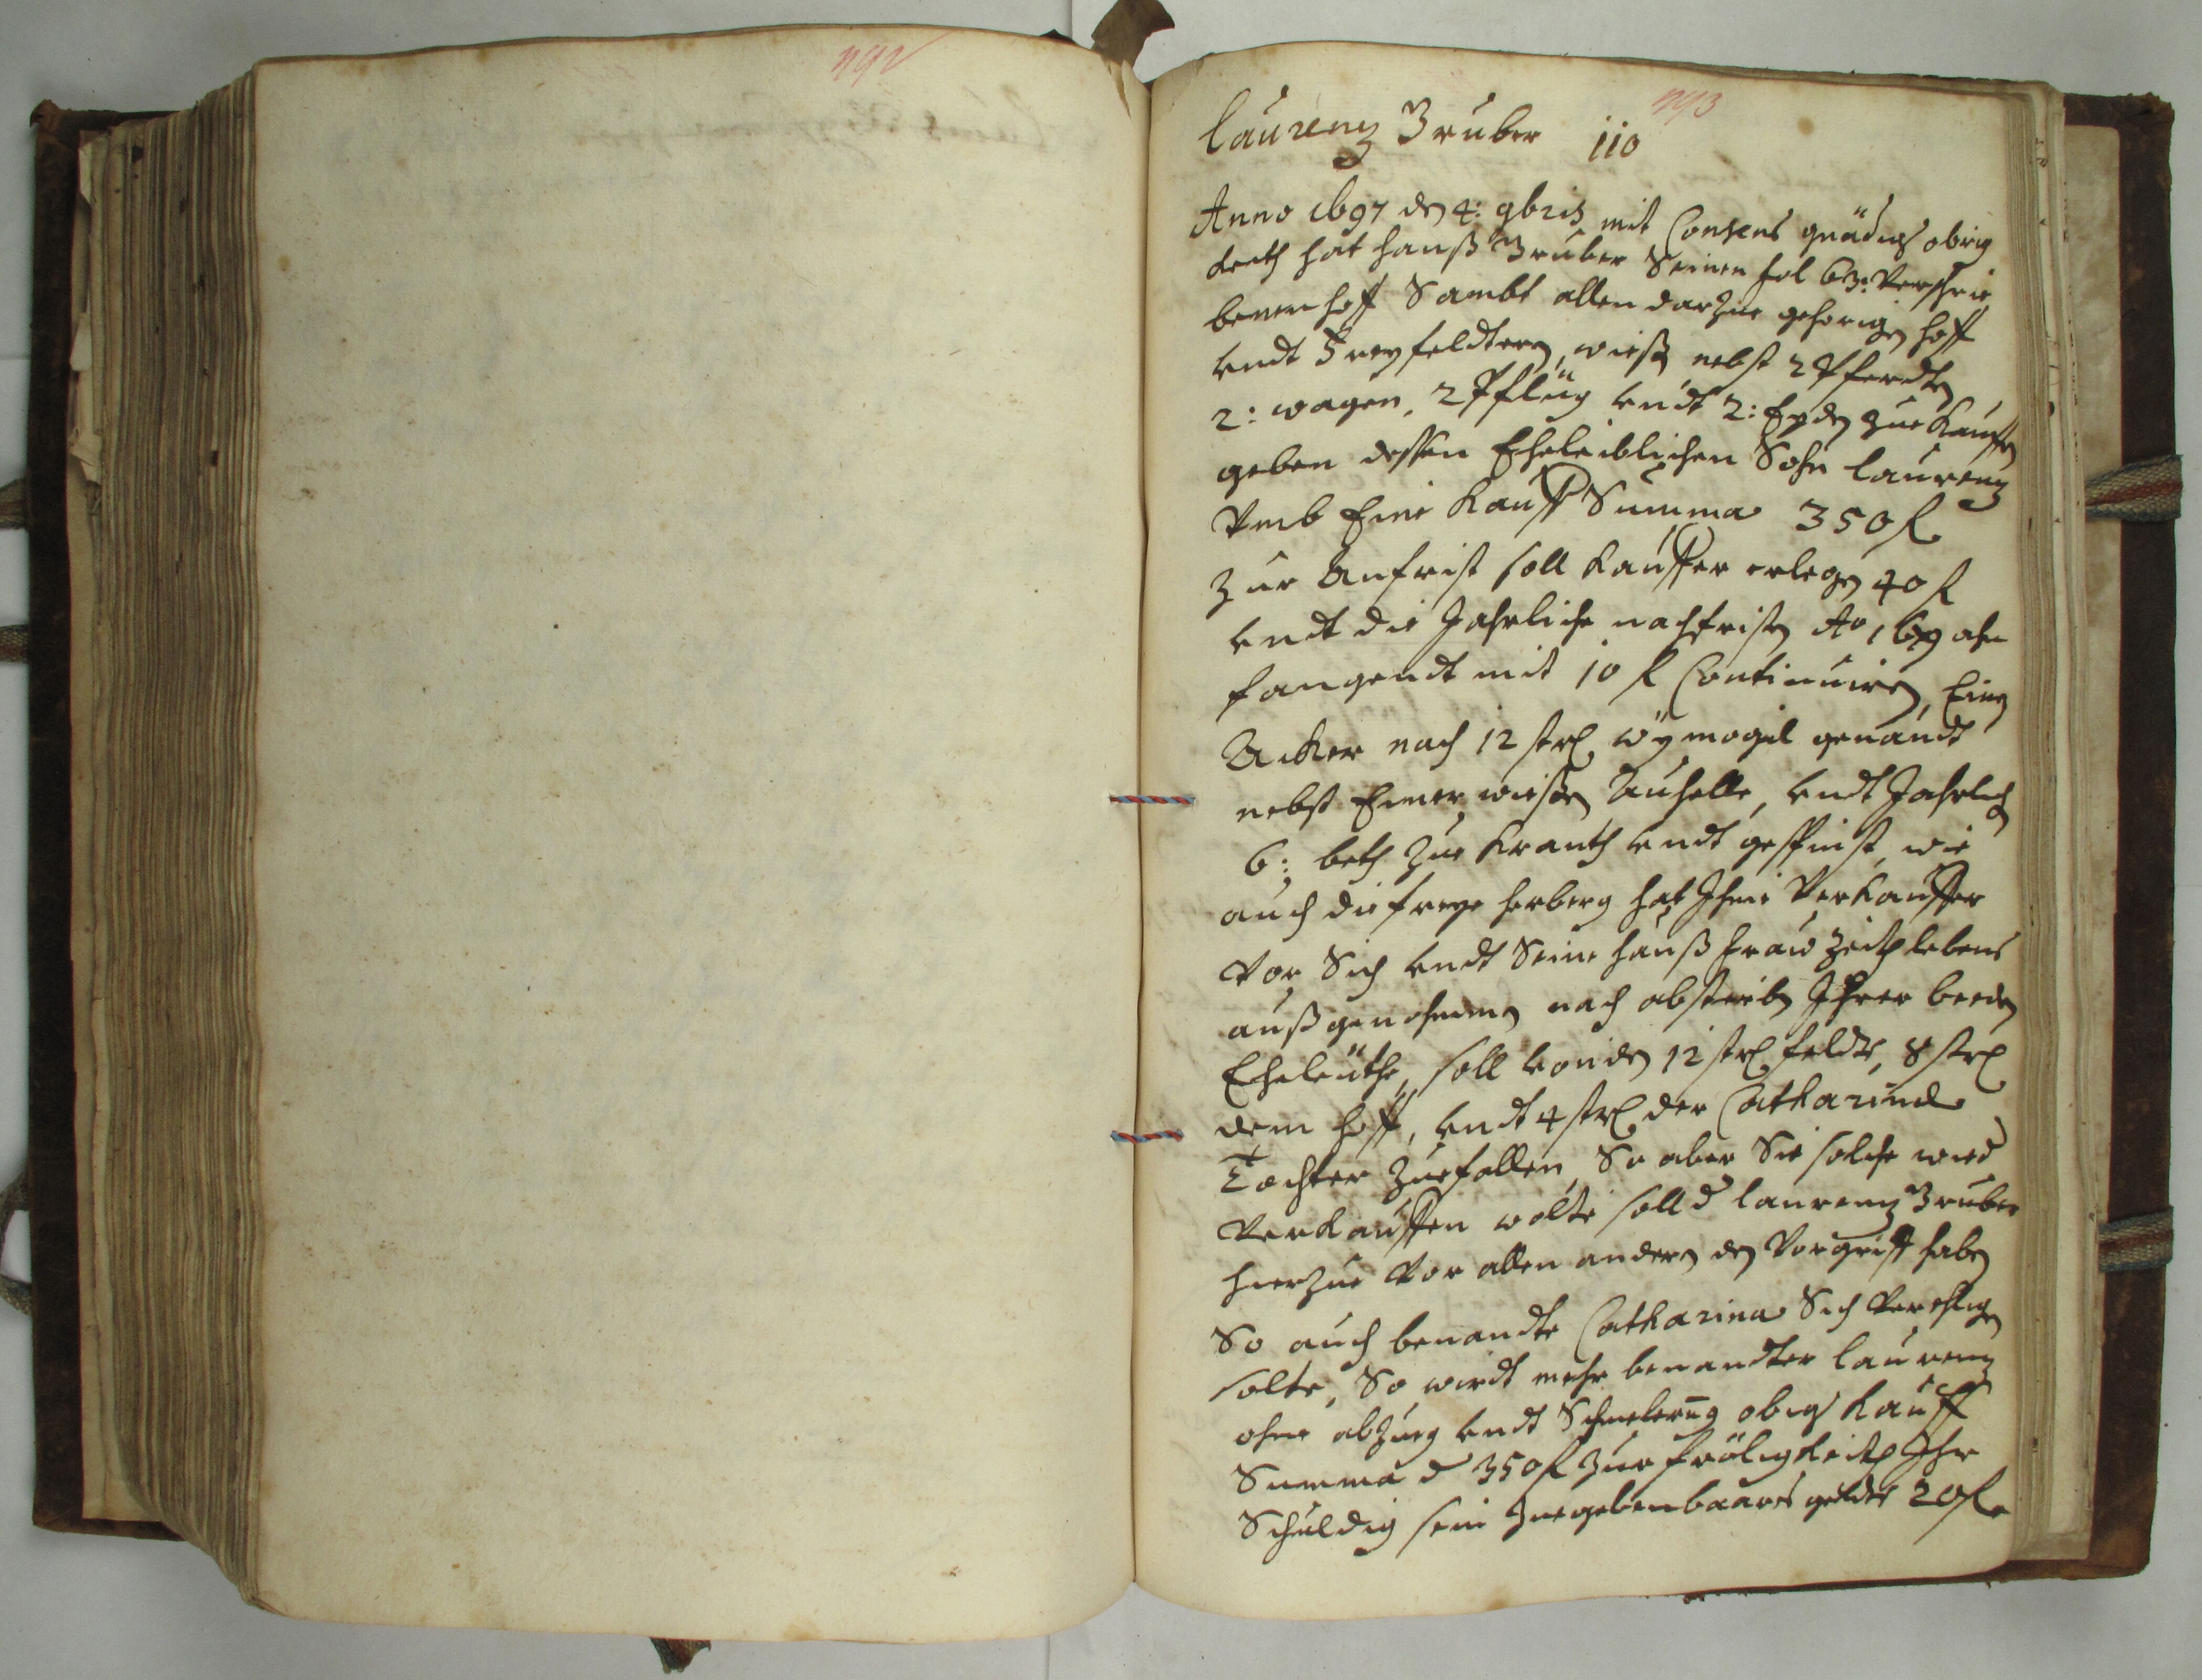 192
193
Laurenz Bruber 110
Anno 1697 den 4: 9bris mit Consens gnädig obrig
keith hat Hanß Bruber Seinen fol 63: Verschrie
benen hoff Sambt allen darzue gehorigen hoff
undt Freyfeldtern, wießen nebst 2 Pferdten
2: wagen, 2 Pflüg undt 2: Eyden zue Kauffen
geben dessen Eheleiblichen Sohn Laurenz
Vmb Eine Kauff Summa 350 f
Zur Anfrist soll Kauffer erlegen 40 f
undt die Jahrliche nachfristen Ao 1699 ahn
fangendt mit 10 f Continuiren, Einen
Acker nach 12 strl genandt
nebst Einer wießen, undt Jahrlich
6: beth zue Krauth undt gespinst, wie
auch die freye herberg hat Ihme Verkauffer
Vor Sich undt Seine Haußfraw Zeith lebens
außgenohmmen nach absterben Ihrer beeden
Eheleüthe, soll von den 12 strl feldt, 8 strl
dem hoff, undt 4 strl der Catharina
Tochter Zuefallen, So aber Sie solche wied
Verkauffen wolte soll d Laurenz Bruber
hierzue Vor allen andern den Vorgriff haben
So auch benandte Catharina Sich Verehligen
solte, So wirdt mehr benandter Laurenz
ohne abzueg undt Schmelerung obig Kauff
Summa d 350 f zur fröligkeith Ihr
Schuldig sein zuegeben baares geldt 20 f